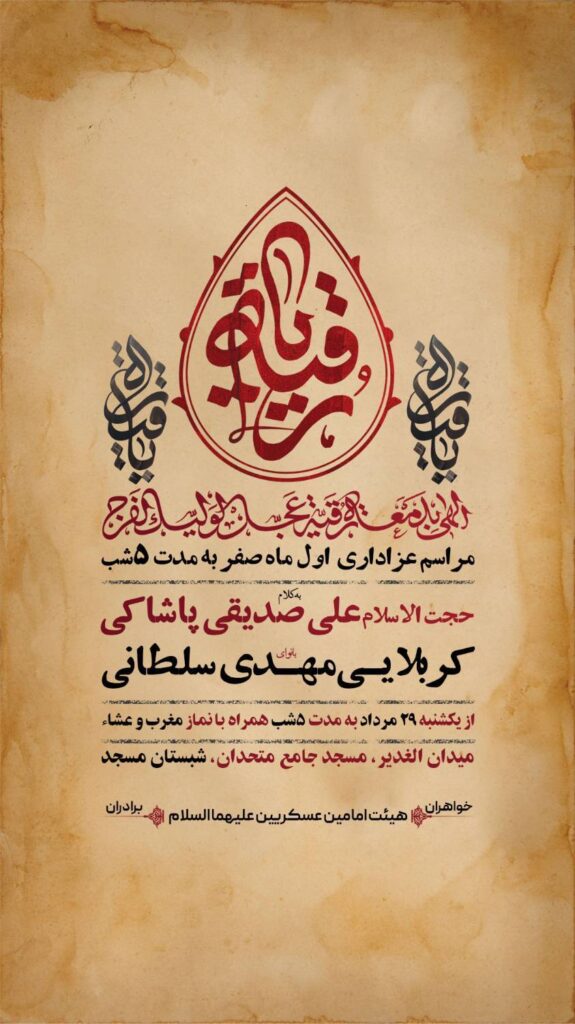 یا رقیه
یا رقیه
یا رقیه
الهی بدمعة رقیة عجل لولیک الفرج
مراسم عزاداری اول ماه صفر به مدت ۵شب
به کلام
حجت الاسلام علی صدیقی پاشاکی
بانوای
کربلایی مهدی سلطانی
از یکشنبه ۲۹ مرداد به مدت ۵شب همراه با نماز مغرب و عشاء
میدان الغدیر، مسجد جامع متحدان، شبستان مسجد
خواهران هیئت امامین عسکریین علیهما السلام برادران